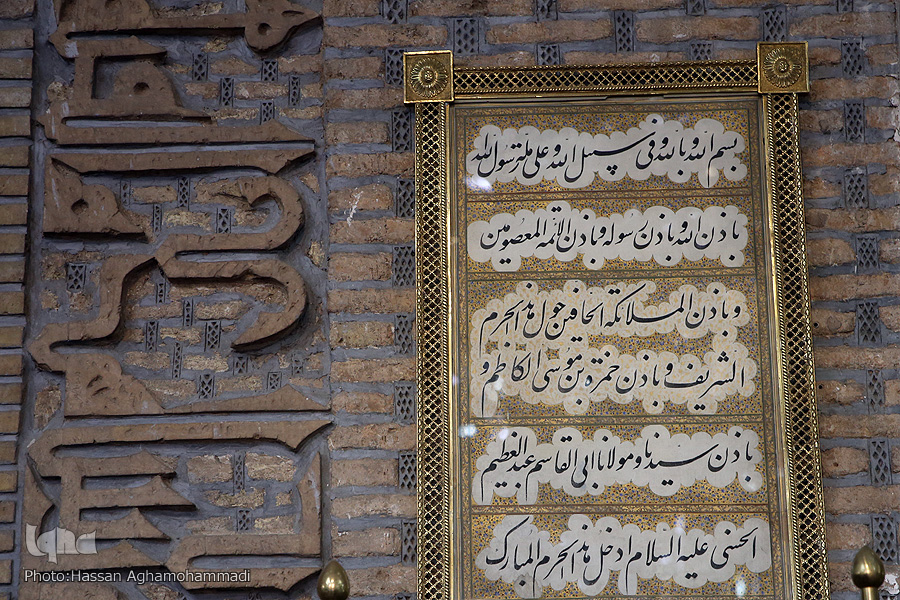 بسم الله و بالله و فی سبیل الله و علی ملة رسول الله
باذن الله و باذن رسوله و باذن الائمه المعصومین
و باذن الملائکة الحافین حول هذا الحرم
الشریف و باذن حمزه بن موسی الکاظم و
باذن سیدنا و مولانا ابی القاسم عبدالعظیم
الحسنی علیه السلام ادخل هذا الحرم المبارک
iqna
Photo:Hassan Aghamohammadi